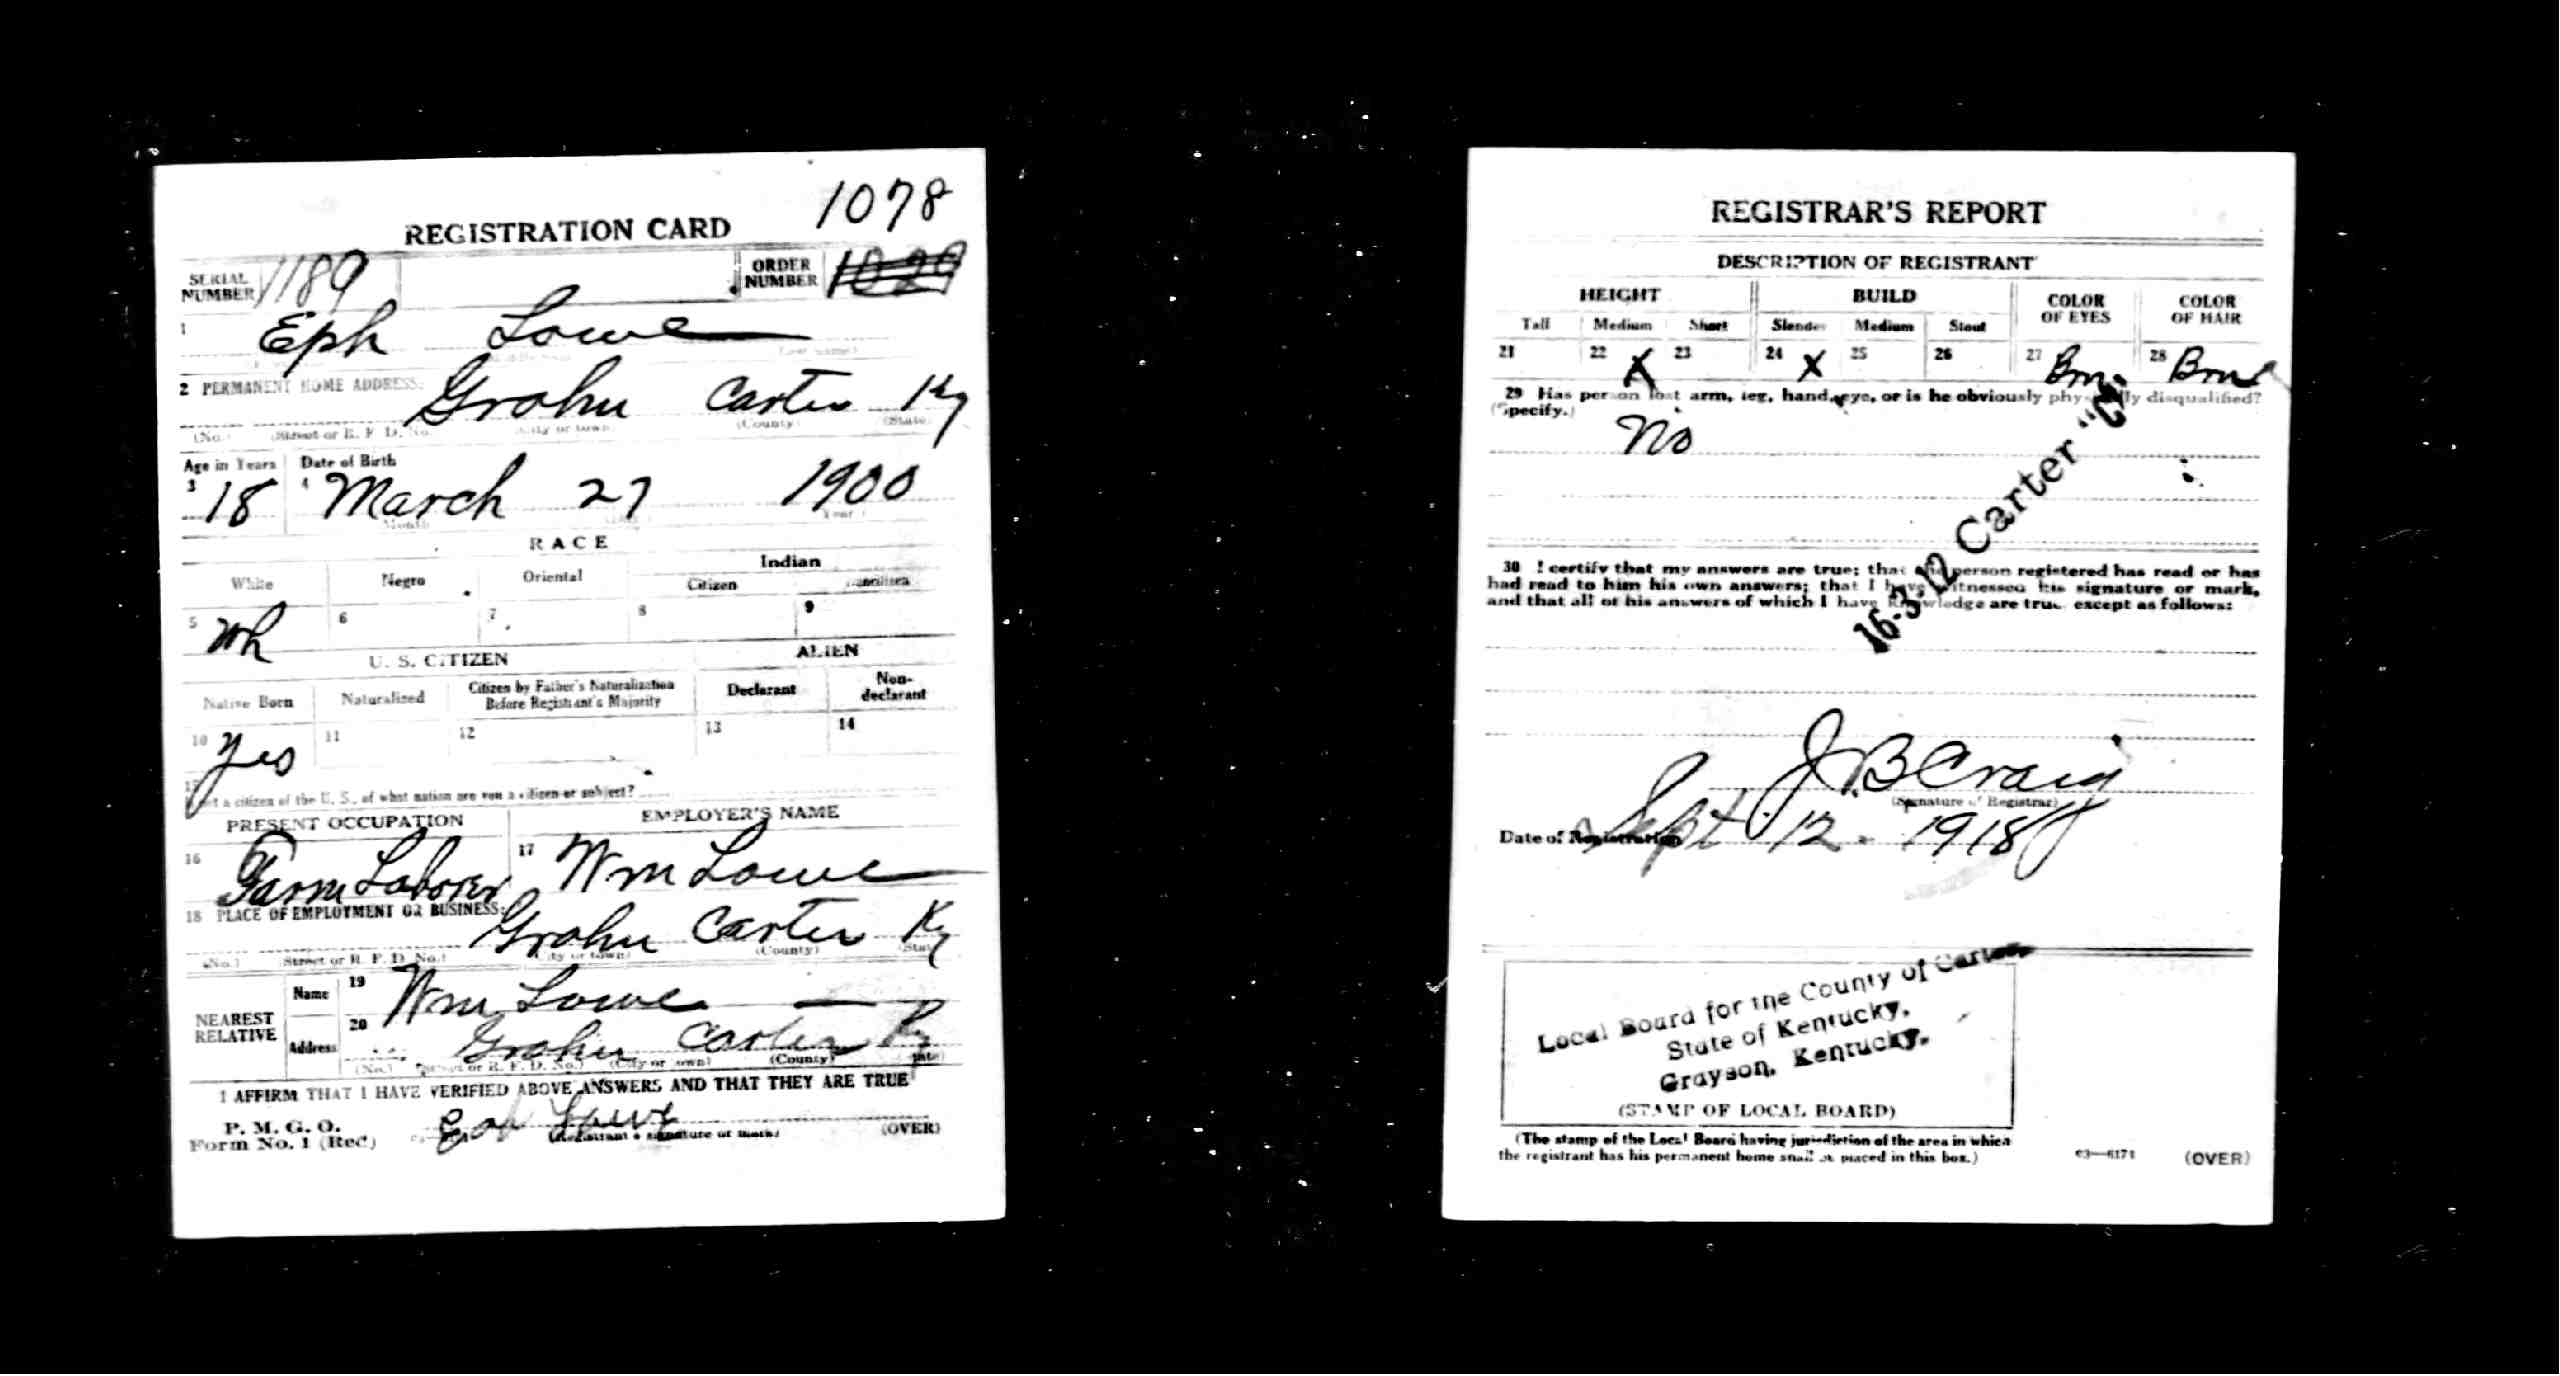 1078
REGISTRATION CARD
SERIAL NUMBER 1189 ORDER NUMBER
1 Eph Lowe
2 PERMANENT HOME ADDRESS:
Grahn Carter Ky
(No.) (Street or R. F. D. No.) (City or town) (County) (State)
Age in Years Date of Birth
3 18 4 March 27 1900
(Month) (Year)
RACE
White Negro Oriental Indian
Citizen
5 Wh 6 7 8 9
U. S. CITIZEN ALIEN
Native Born Naturalized Citizen by Father's Naturalization Before Registrant's Majority Declarant Non-declarant
10 Yes 11 12 13 14
15 a citizen of the U. S., of what nation are you a citizen or subject?
PRESENT OCCUPATION EMPLOYER'S NAME
16 Farm Laborer 17 Wm Lowe
18 PLACE OF EMPLOYMENT OR BUSINESS:
Grahn Carter Ky
(No.) (Street or R. F. D. No.) (City or town) (County) (State)
NEAREST RELATIVE
Name 19 Wm Lowe
Address 20 Grahn Carter Ky
(No.) (Street or R. F. D. No.) (City or town) (County) (State)
I AFFIRM THAT I HAVE VERIFIED ABOVE ANSWERS AND THAT THEY ARE TRUE
P. M. G. O.
Form No. 1 (Red) Eph Lowe
(Registrant's signature or mark) (OVER)
REGISTRAR'S REPORT
DESCRIPTION OF REGISTRANT
HEIGHT BUILD COLOR OF EYES COLOR OF HAIR
Tall Medium Short Slender Medium Stout
21 22 X 23 24 X 25 26 27 Brn 28 Brn
29 Has person lost arm, leg, hand, eye, or is he obviously physically disqualified?
(Specify.)
No
16-3-12 Carter "C"
30 I certify that my answers are true; that the person registered has read or has
had read to him his own answers; that I have witnessed his signature or mark,
and that all of his answers of which I have knowledge are true, except as follows:
J B Craig
(Signature of Registrar)
Date of Registration Sept 12 - 1918
Local Board for the County of Carter
State of Kentucky,
Grayson, Kentucky.
(STAMP OF LOCAL BOARD)
(The stamp of the Local Board having jurisdiction of the area in which
the registrant has his permanent home shall be placed in this box.)
03—6171 (OVER)